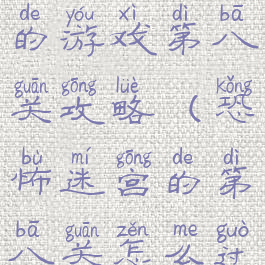 de yóu xì dì bā
的游戏第八
guān gōng lüè kǒng
关攻略(恐
bù mí gōng de dì
怖迷宫的第
bā guān zěn me guò
八关怎么过